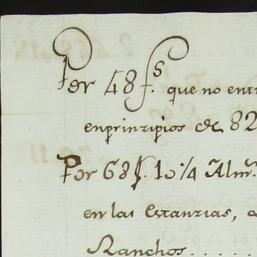 Por 48 f.s que no ent
enprinzipios de 82
Por 68 f. 10 1/4 Alm.
en las Estanzias,
Ranchos.....